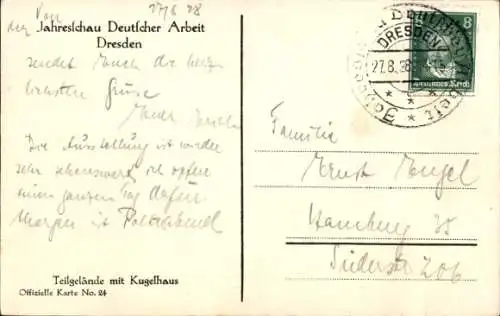 Von 27/8 28
der Jahresschau Deutscher Arbeit
Dresden
sendet Euch die herz
lichsten Grüsse
Die Ausstellung ist wieder
sehr sehenswert, ich opfere
einen ganzen Tag dafür.
Morgen ist
Teilgelände mit Kugelhaus
Offizielle Karte No. 24
8
DRESDEN
27.8.28
Deutsches Reich
Familie
Ernst Engel
Hamburg 35
Süderstr 206